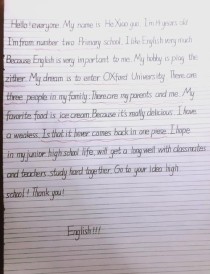 Hello! everyone. My name is He Xiao yue. I'm 11 years old.
I'm from number two Primary school. I like English very much.
Because English is very important to me. My hobby is play the
zither. My dream is to enter Oxford University. There are
three people in my family. There are my parents and me. My
favorite food is ice cream. Because it's really delicious. I have
a weakness. Is that it never comes back in one piece. I hope
in my junior high school life, will get a long well with classmates
and teachers study hard together. Go to your idea high
school! Thank you!
English!!!